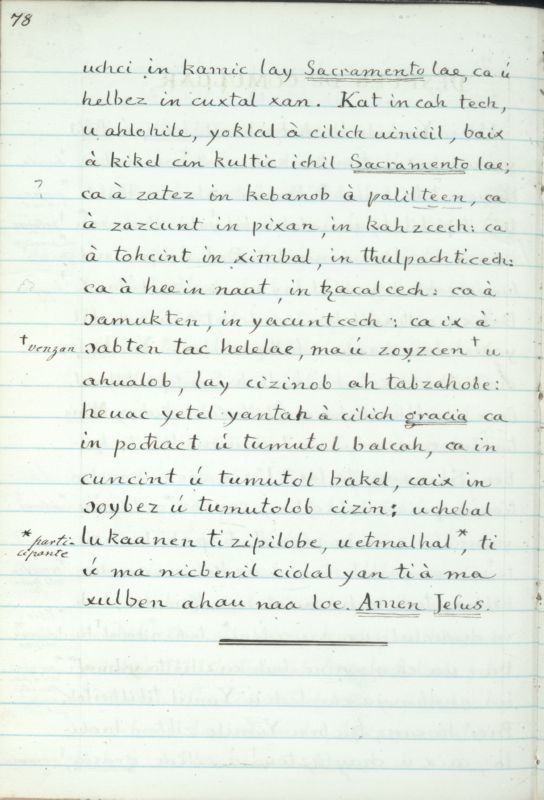 78
uchci in kamic lay Sacramento lae, ca ú
helbez in cuxtal xan. Kat in cah tech,
u ahlohile, yoklal à cilich uinicil, baix
à kikel cin kultic ichil Sacramento lae;
? ca à zatez in kebanob à palilteen, ca
à zazcunt in pixan, in kahzcech: ca
à tohcint in ximbal, in thulpachticech:
ca à hee in naat, in tzacalcech: ca à
ɔamukten, in yacuntcech: ca ix à
†venzan ɔabten tac helelae, ma ú zoyzcen† u
ahualob, lay cizinob ah tabzahobe:
heuac yetel yantah à cilich gracia ca
in pochact ú tumutol balcah, ca in
cuncint ú tumutol bakel, caix in
ɔoybez ú tumutolob cizin; uchebal
*parti- lukaanen ti zipilobe, uetmalhal*, ti
cipante
ú ma nicbenil ciolal yan ti à ma
xulben ahau naa loe. Amen Jesus.